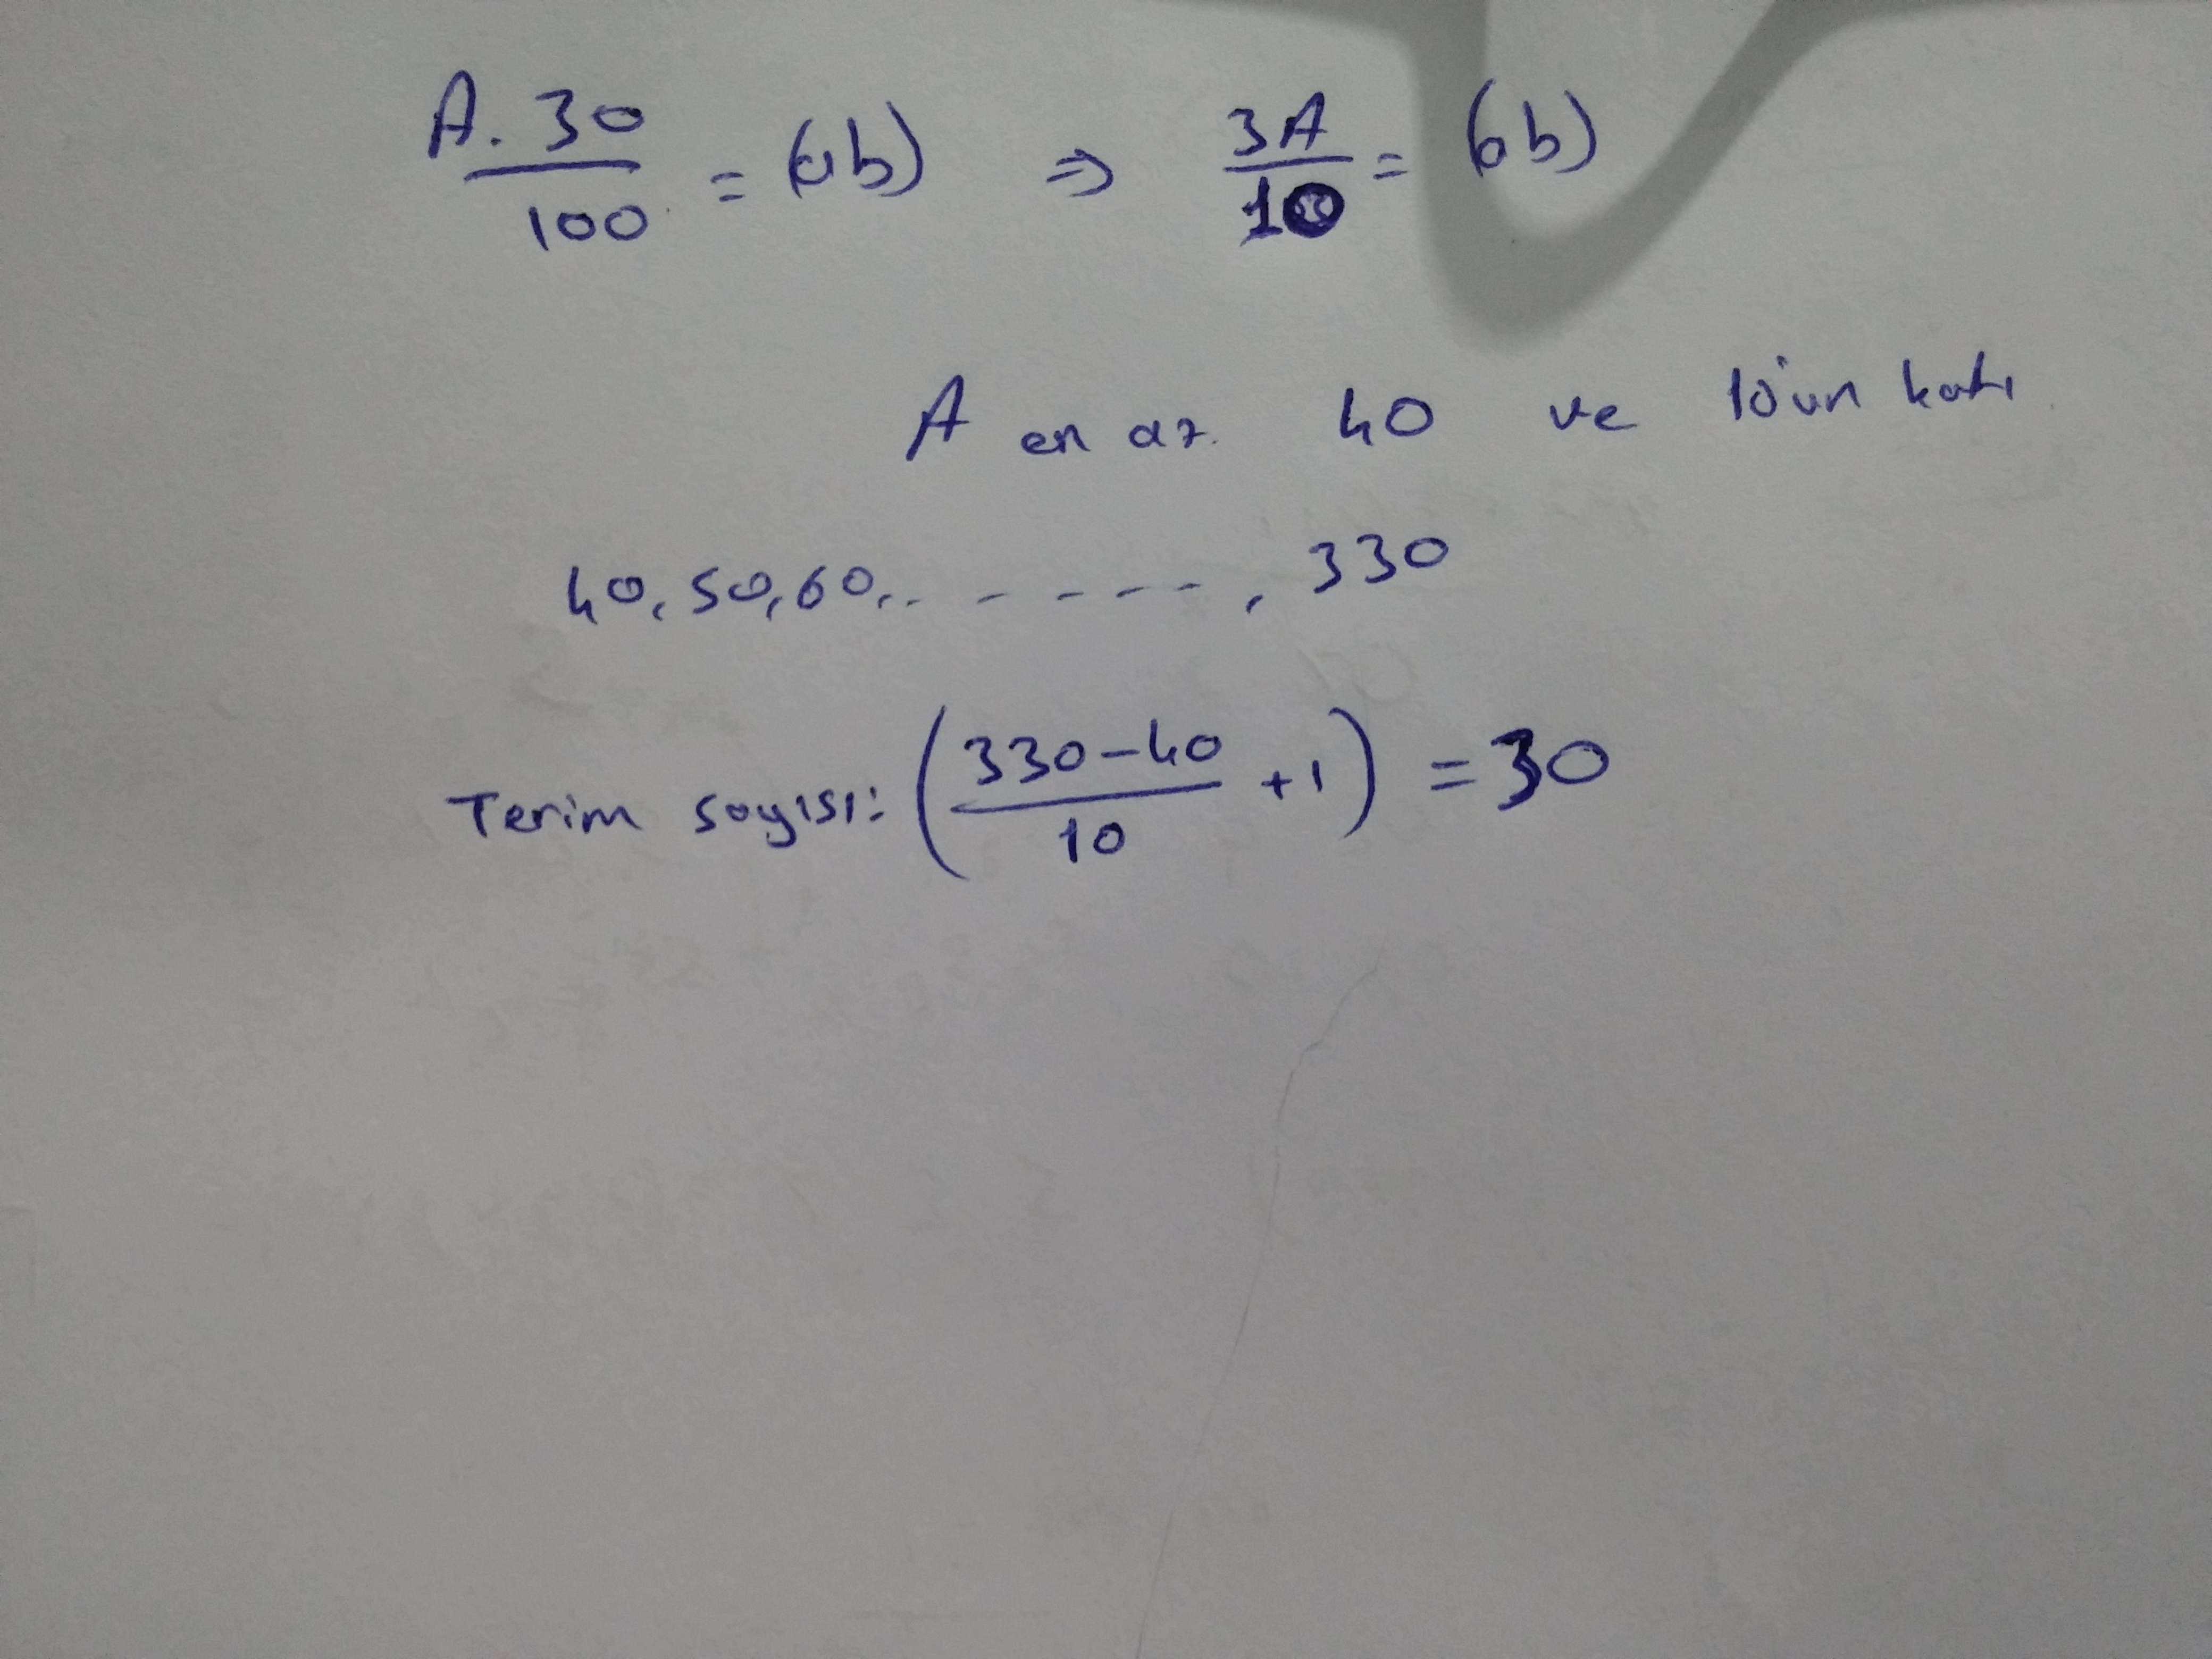 A. 30 / 100 = (ab) ⇒ 3A / 10 = (ab)
A en az 40 ve 10'un katı
40, 50, 60, .. - - - - - , 330
Terim sayısı: ( 330-40 / 10 + 1 ) = 30